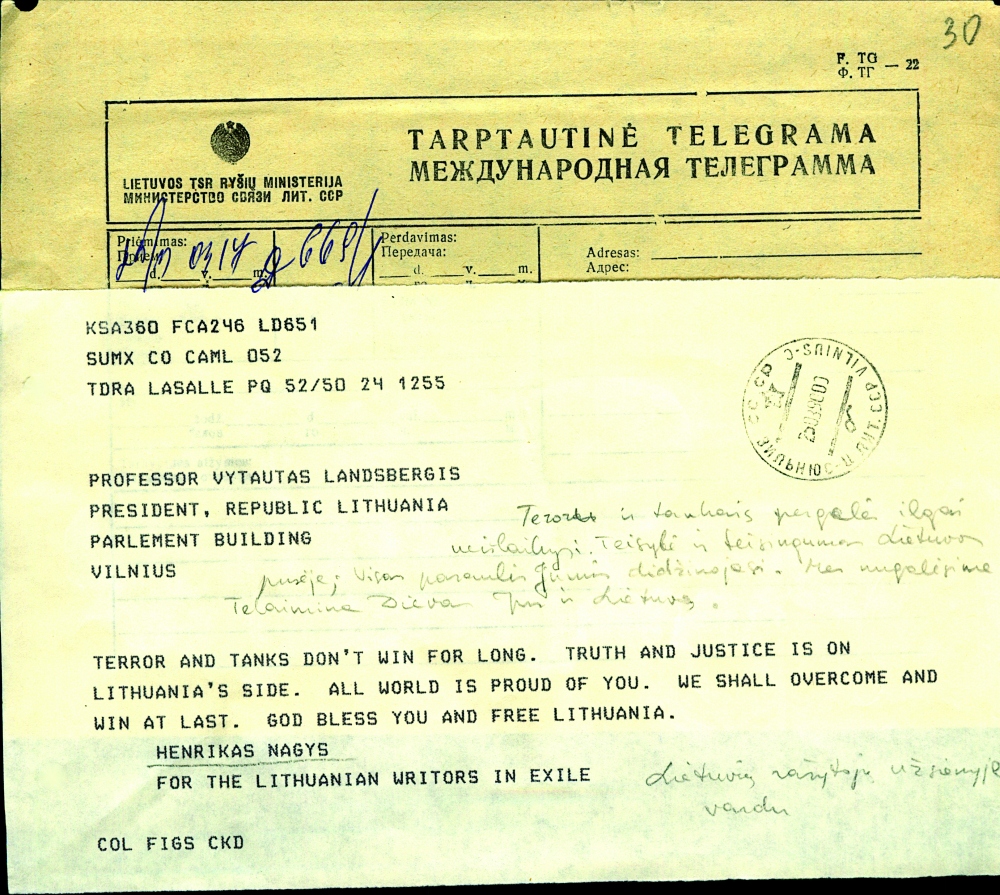 30
F. TG
Ф. ТГ — 22
TARPTAUTINĖ TELEGRAMA
МЕЖДУНАРОДНАЯ ТЕЛЕГРАММА
LIETUVOS TSR RYŠIŲ MINISTERIJA
МИНИСТЕРСТВО СВЯЗИ ЛИТ. ССР
Priėmimas:
Прием:
d. v. m.
Perdavimas:
Передача:
d. v. m.
Adresas:
Адрес:
KSA360 FCA246 LD651
SUMX CO CAML 052
TDRA LASALLE PQ 52/50 24 1255
VILNIUS-C
ВИЛЬНЮС-Ц ЛИТ.ССР
PROFESSOR VYTAUTAS LANDSBERGIS
PRESIDENT, REPUBLIC LITHUANIA
PARLEMENT BUILDING
VILNIUS
Teroras ir tankais pergalės ilgai
neišlaikysi. Teisybė ir teisingumas Lietuvos
pusėje; Visas pasaulis Jumis didžiuojasi. Mes nugalėsime
Telaimina Dievas Jus ir Lietuvą.
TERROR AND TANKS DON'T WIN FOR LONG. TRUTH AND JUSTICE IS ON
LITHUANIA'S SIDE. ALL WORLD IS PROUD OF YOU. WE SHALL OVERCOME AND
WIN AT LAST. GOD BLESS YOU AND FREE LITHUANIA.
HENRIKAS NAGYS
FOR THE LITHUANIAN WRITORS IN EXILE
Lietuvių rašytojų užsienyje
vardu
COL FIGS CKD